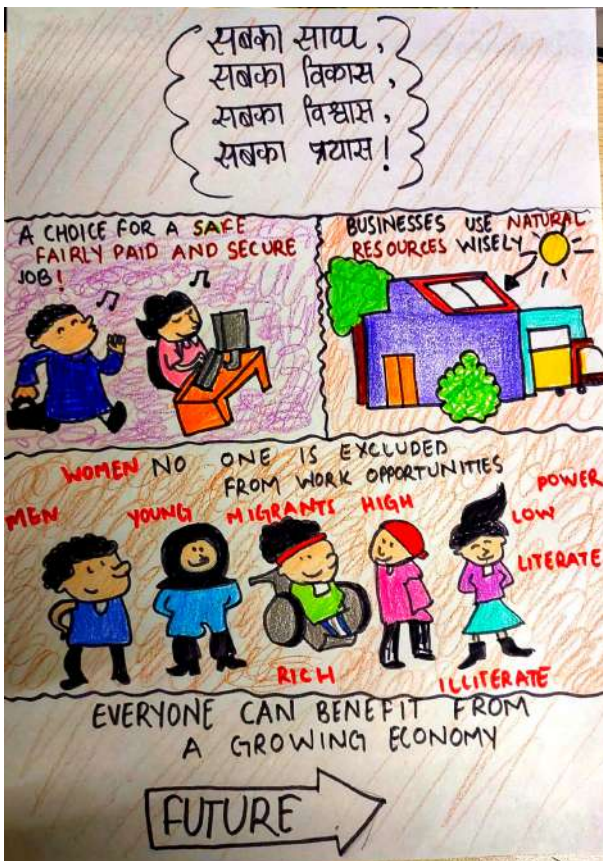 सबका साथ,
सबका विकास,
सबका विश्वास,
सबका प्रयास!
A CHOICE FOR A SAFE
FAIRLY PAID AND SECURE
JOB!
BUSINESSES USE NATURAL
RESOURCES WISELY
WOMEN NO ONE IS EXCLUDED
FROM WORK OPPORTUNITIES
POWER
MEN YOUNG MIGRANTS HIGH LOW
LITERATE
RICH ILLITERATE
EVERYONE CAN BENEFIT FROM
A GROWING ECONOMY
FUTURE